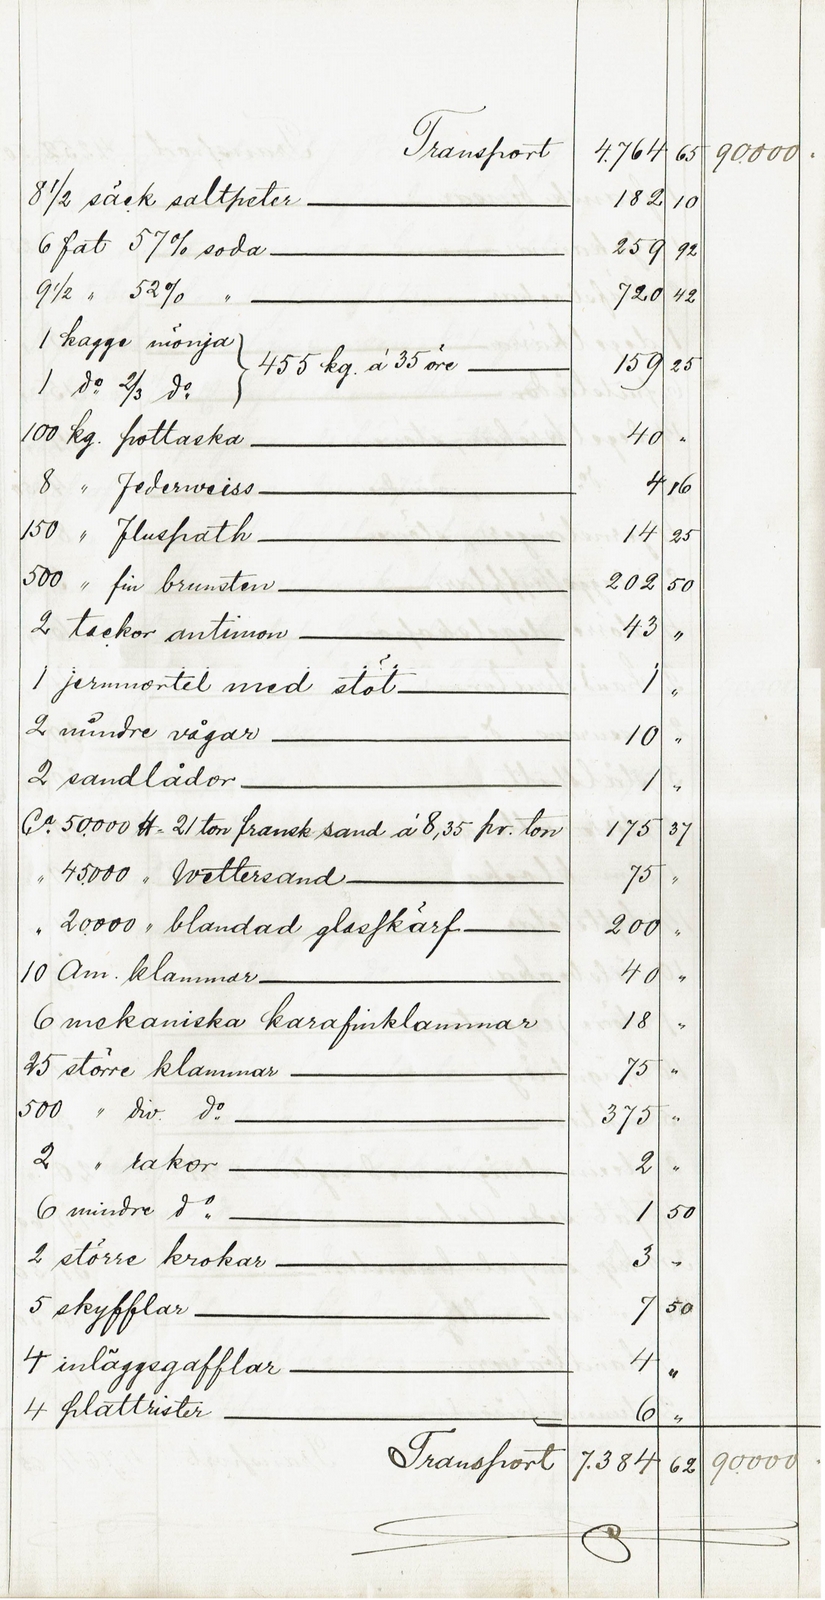 Transport 4.764 65 90000.
8 1/2 säck saltpeter 182 10
6 fat 57% soda 259 92
9 1/2 " 52% " 720 42
1 kagge mönja
455 kg. á 35 öre 159 25
1 do 2/3 do
100 kg. pottaska 40 "
8 " Federweiss 4 16
150 " Flusspath 14 25
500 " fin brunsten 202 50
2 tackor antimon 43 "
1 jernmortel med stöt 1 "
2 mindre vågar 10 "
2 sandlådor 1 "
Ca 50.000 ℔ = 21 ton fransk sand á 8,35 pr. ton 175 37
" 45000 " Wettersand 75 "
" 20.000 " blandad glasskärf 200 "
10 Am. klammar 40 "
6 mekaniska karafinklammar 18 "
25 större klammar 75 "
500 " div. do 375 "
2 " rakor 2 "
6 mindre do 1 50
2 större krokar 3 "
5 skyfflar 7 50
4 inläggsgafflar 4 "
4 plattrister 6 "
Transport 7.384 62 90000.